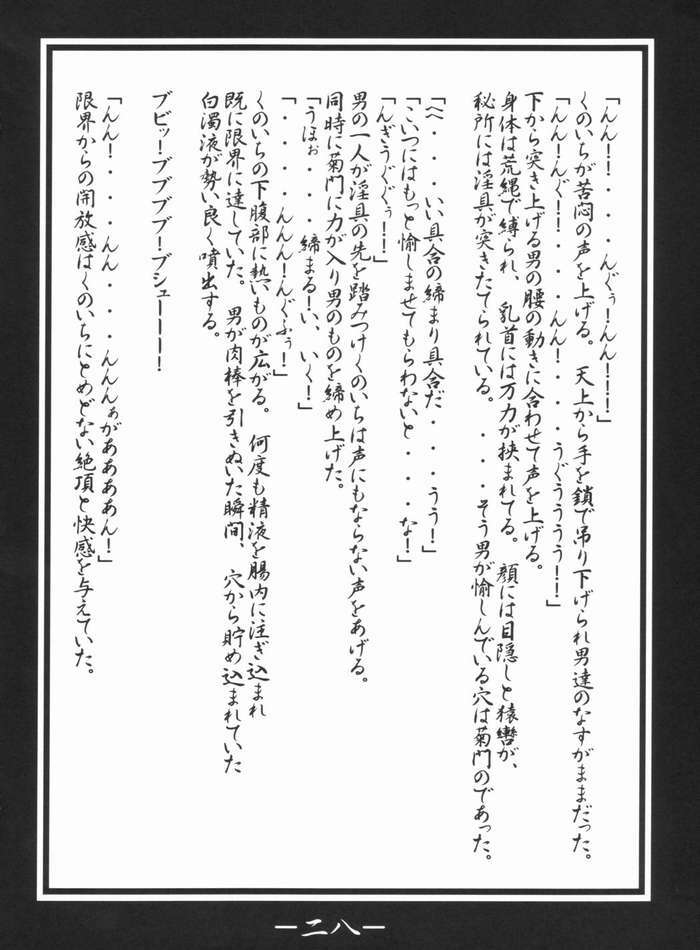 「んん！！・・・んぐぅ！んん！！！」
くのいちが苦悶の声を上げる。天上から手を鎖で吊り下げられ男達のなすがままだった。
「んん！んぐ！！・・・んん！・・・うぐうううう！！」
下から突き上げる男の腰の動きに合わせて声を上げる。
身体は荒縄で縛られ、乳首には万力が挟まれてる。顔には目隠しと猿轡が、
秘所には淫具が突きたてられている。・・・そう男が愉しんでいる穴は菊門のであった。
「へ・・・いい具合の締まり具合だ・・・うう！」
「こいつにはもっと愉しませてもらわないと・・・な！」
「んぎうぐぐぅ！！」
男の一人が淫具の先を踏みつけくのいちは声にもならない声をあげる。
同時に菊門に力が入り男のものを締め上げた。
「うほぉ・・・締まる！い、いく！」
「・・・・んんん！んぐふぅ！」
くのいちの下腹部に熱いものが広がる。何度も精液を腸内に注ぎ込まれ
既に限界に達していた。男が肉棒を引きぬいた瞬間、穴から貯め込まれていた
白濁液が勢い良く噴出する。
ブビッ！ブブブブ！ブシューーー！
「んん！・・・んん・・・んんんぁがああああん！」
限界からの開放感はくのいちにとめどない絶頂と快感を与えていた。
—二八—